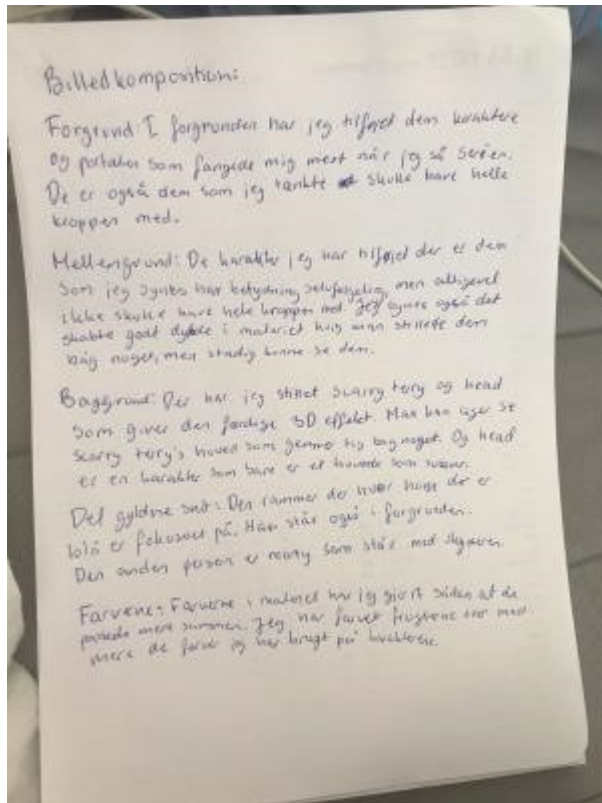 Billedkomposition:
Forgrund: I forgrunden har jeg tilføjet dem karaktere
og portaler som fangede mig mest når jeg så serien.
De er også dem som jeg tænkte skulle have hele
kroppen med.
Mellemgrund: De karakter jeg har tilføjet der er dem
som jeg synes har betydning selvfølgelig, men alligevel
ikke skulle have hele kroppen med. Jeg synes også det
skabte godt dybde i maleriet hvis man stillede dem
bag noget, men stadig kunne se dem.
Baggrund: Der har jeg stillet scarry tery og head
som giver den færdige 3D effekt. Man kan også se
scarry tery's hoved som gemme sig bag noget. Og head
er en karakter som bare er et hoved som svæver.
Det gyldne snit: Den rammer der hvor ham de er
er fokuseret på. Han står også i forgrunden.
Den anden person er som står med
Farvene: Farvene i maleriet har jeg gjort siden at de
passede mere sammen. Jeg har farvet med
mere de farver jeg har brugt på karakterene.